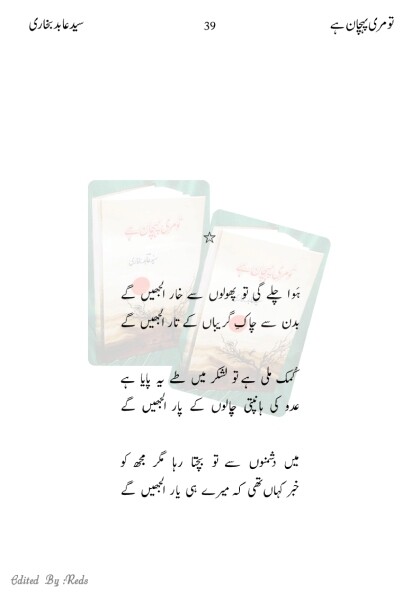 تو مری پہچان ہے 39 سید عابد بخاری
☆
ہَوا چلے گی تو پھولوں سے خار الجھیں گے
بدن سے چاکِ گریباں کے تار الجھیں گے
کُمک ملی ہے تو لشکر میں طے یہ پایا ہے
عدو کی ہانپتی چالوں کے پار الجھیں گے
میں دشمنوں سے تو بچتا رہا مگر مجھ کو
خبر کہاں تھی کہ میرے ہی یار الجھیں گے
تو مری پہچان ہے
تو مری پہچان ہے
Edited By :Reds